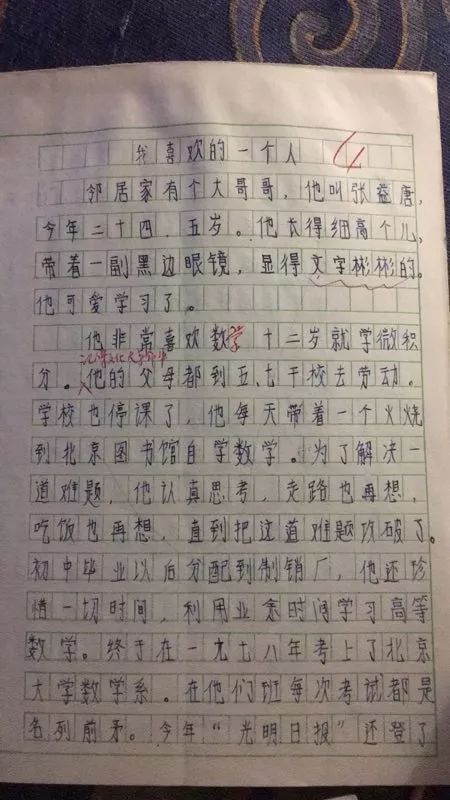 我喜欢的一个人
邻居家有个大哥哥，他叫张益唐，
今年二十四、五岁。他长得细高个儿，
带着一副黑边眼镜，显得文字彬彬的。
他可爱学习了。
他非常喜欢数学 十二岁就学微积
分。他的父母都到五、七干校去劳动。
学校也停课了，他每天带着一个火烧
到北京图书馆自学数学。为了解决一
道难题，他认真思考，走路也再想，
吃饭也再想，直到把这道难题攻破了。
初中毕业以后分配到制销厂，他还珍
惜一切时间，利用业余时间学习高等
数学。终于在一九七八年考上了北京
大学数学系。在他们班每次考试都是
名列前矛。今年“光明日报”还登了